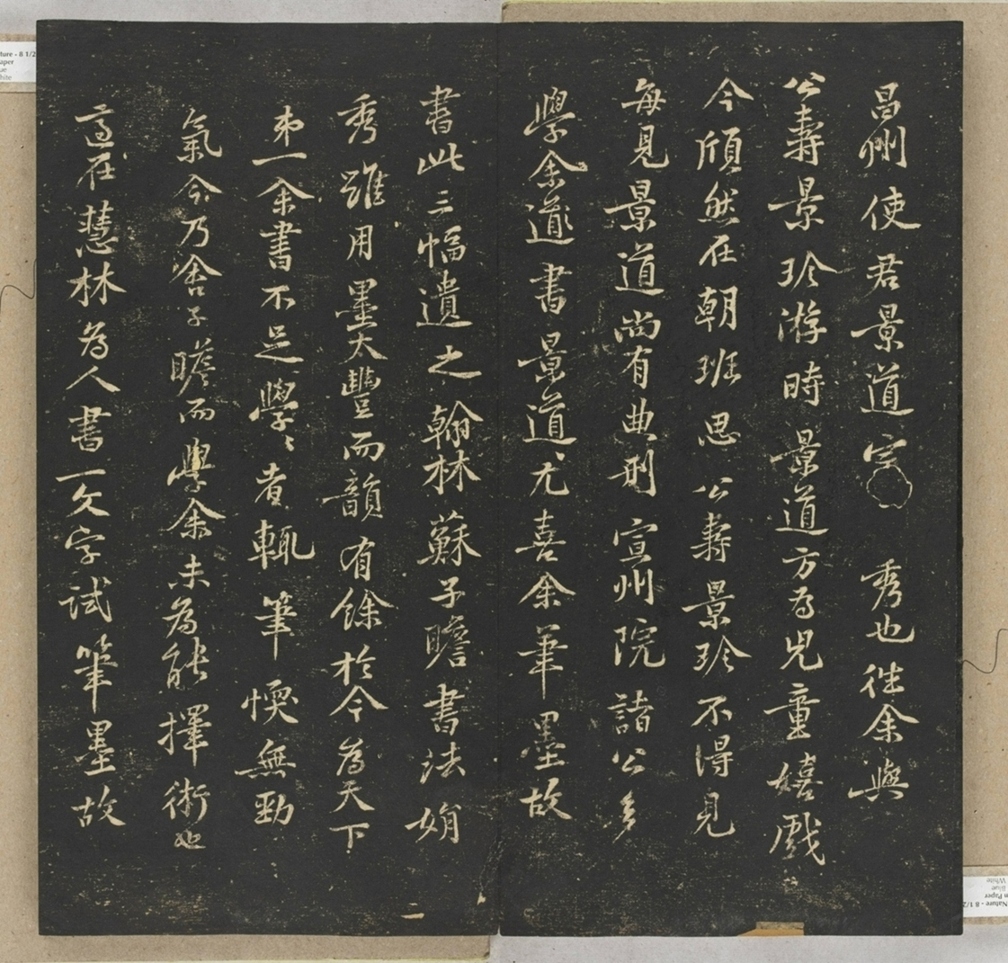 昌州使君景道宗秀也往余與
公壽景珍游時景道方為兒童嬉戲
今頎然在朝班思公壽景珍不得見
每見景道尚有典刑宣州院諸公多
學余道書景道尤喜余筆墨故
書此三幅遺之翰林蘇子瞻書法娟
秀雖用墨太豐而韻有餘於今為天下
弟一余書不足學學者輒筆愞無勁
氣今乃舍子瞻而學余未為能擇術也
適在慧林為人書一文字試筆墨故
二